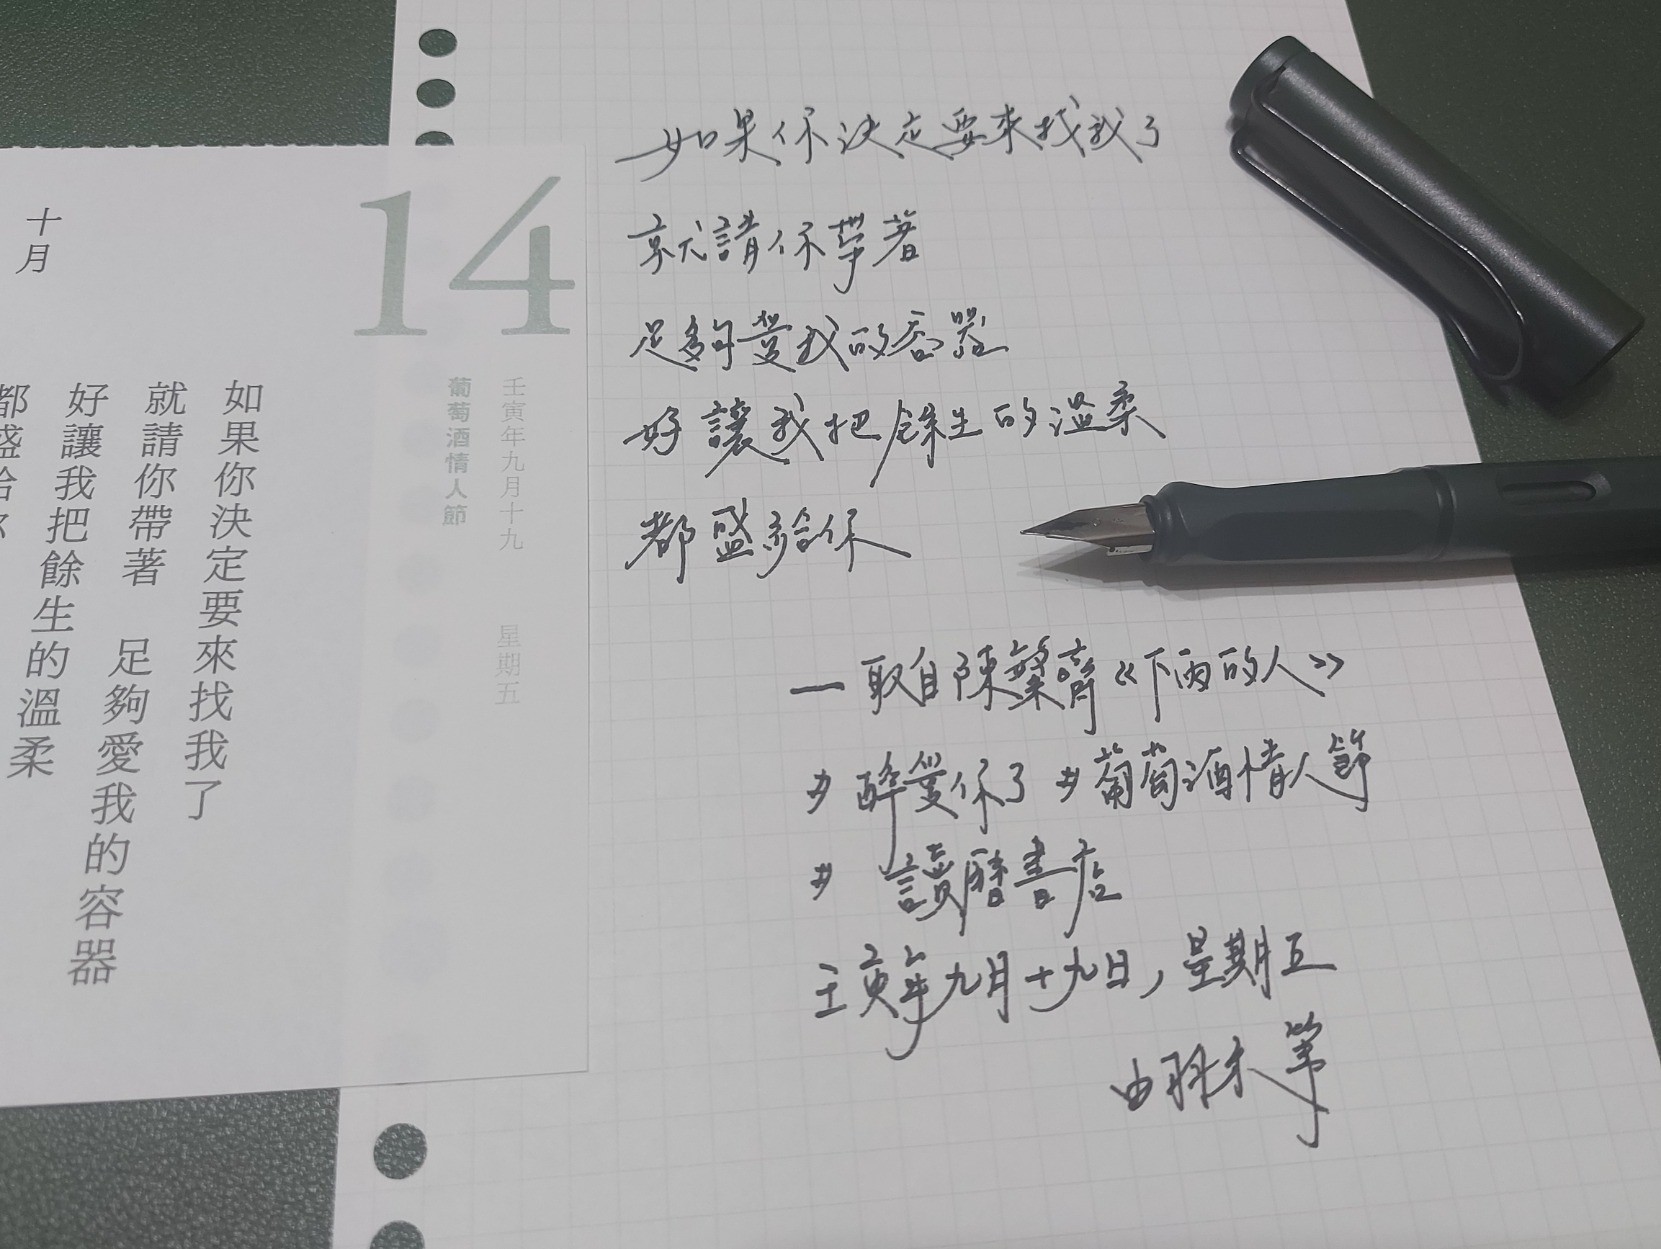 十月
14
壬寅年九月十九 星期五
葡萄酒情人節
如果你決定要來找我了
就請你帶著 足夠愛我的容器
好讓我把餘生的溫柔
都盛給你
如果你決定要來找我了
就請你帶著
足夠愛我的容器
好讓我把餘生的溫柔
都盛給你
一取自陳繁齊《下雨的人》
#醉愛你了 #葡萄酒情人節
# 讀曆書店
壬寅年九月十九日,星期五